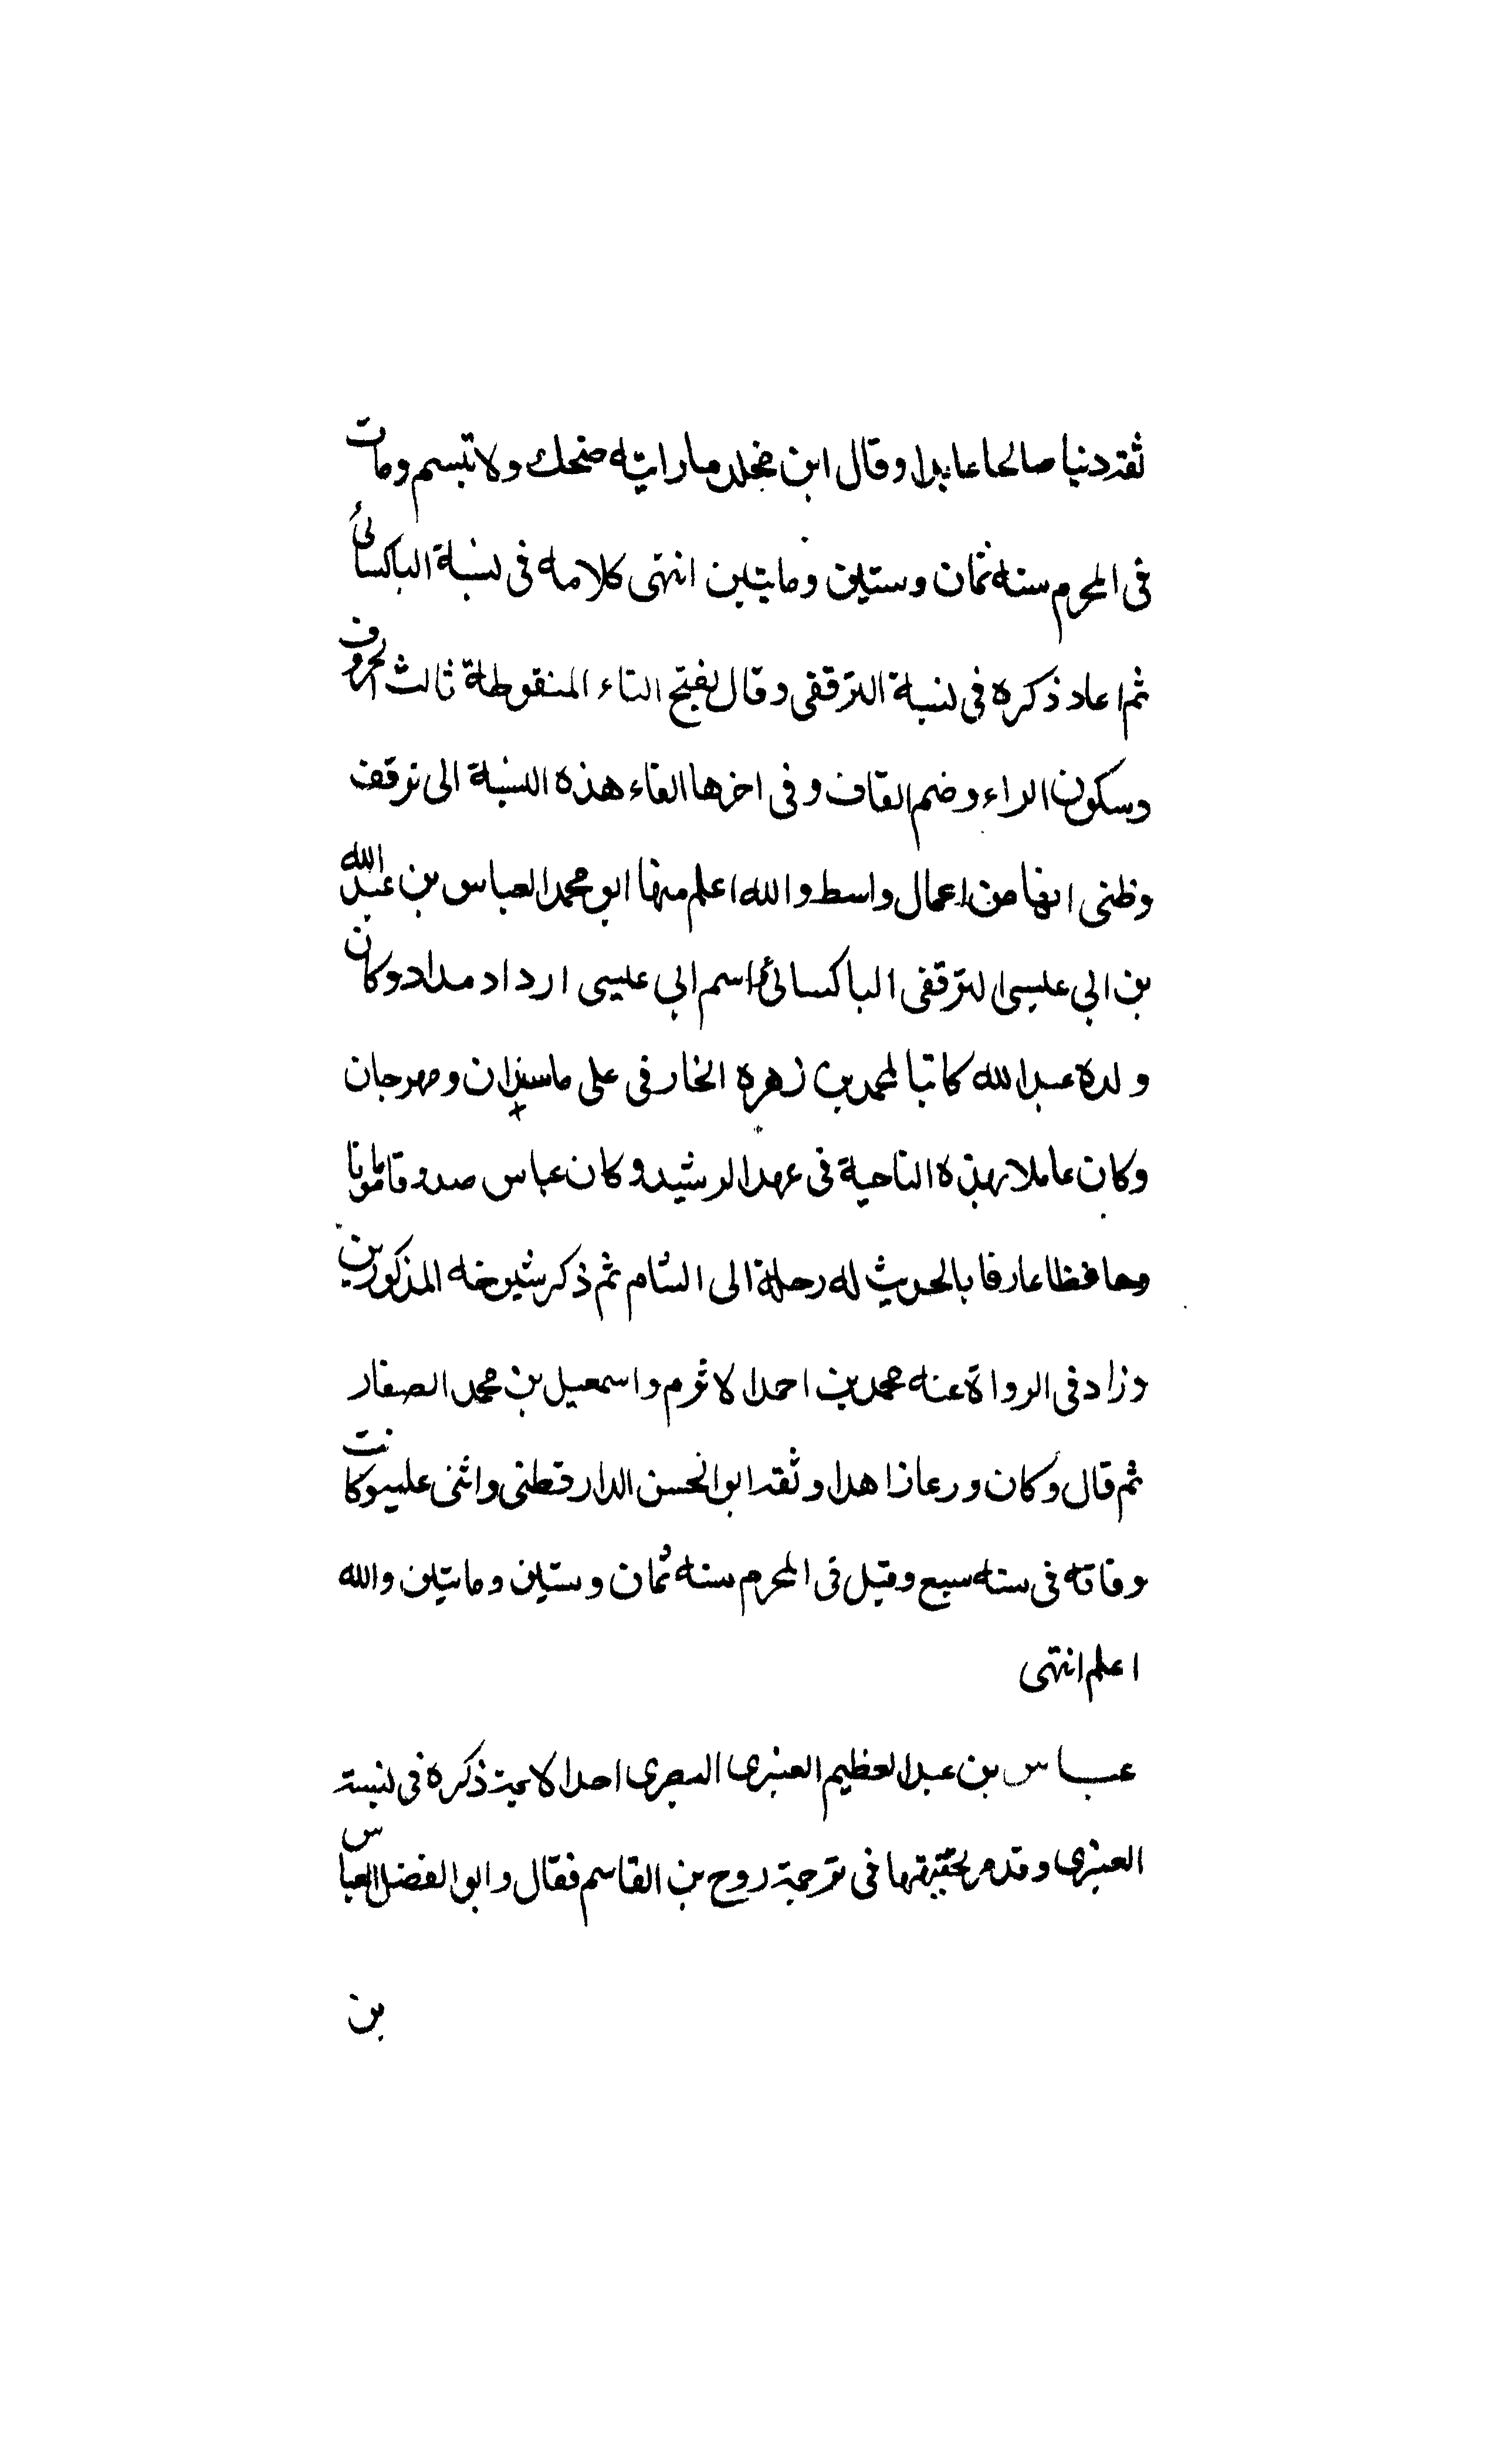 ثقة دنيا صالحا عابدا وقال ابن مخلد ما رايته ضحك ولا تبسم ومات
فى المحرم سنة ثمان وستين ومايتين انتهى كلامه فى نسبة الباكسائى
ثم اعاد ذكره فى نسبة الترقفى وقال بفتح التاء المنقوطة ثالث الحروف
وسكون الراء وضم القاف وفى اخرها الفاء هذه النسبة الى ترقف
وظنى انها من اعمال واسط والله اعلم منها ابو محمد العباس بن عبد الله
بن ابى عيسى الترقفى الباكسائى واسم ابى عيسى ازداد مداد وكان
ولده عبد الله كاتبا لمحمد بن زهره الخارفى على ماسبذان ومهرجان
وكان عاملا بهذه الناحية فى عهد الرشيد وكان عباس صدوقا مامونا
وحافظا عارفا بالحديث له رحلة الى الشام ثم ذكر شيوخه المذكورين
وزاد فى الرواة عنه محمد بن احمد الاثرم واسمعيل بن محمد الصفار
ثم قال وكان ورعا زاهدا وثقه ابو الحسن الدارقطنى واثنى عليه وكانت
وفاته فى سنة سبع وقيل فى المحرم سنة ثمان وستين ومايتين والله
اعلم انتهى
عباس بن عبد العظيم العنبرى البصرى احد الايمة ذكره فى نسبة
العنبرى وقدم تحقيقها فى ترجمة روح بن القاسم فقال وابو الفضل العباس
بن